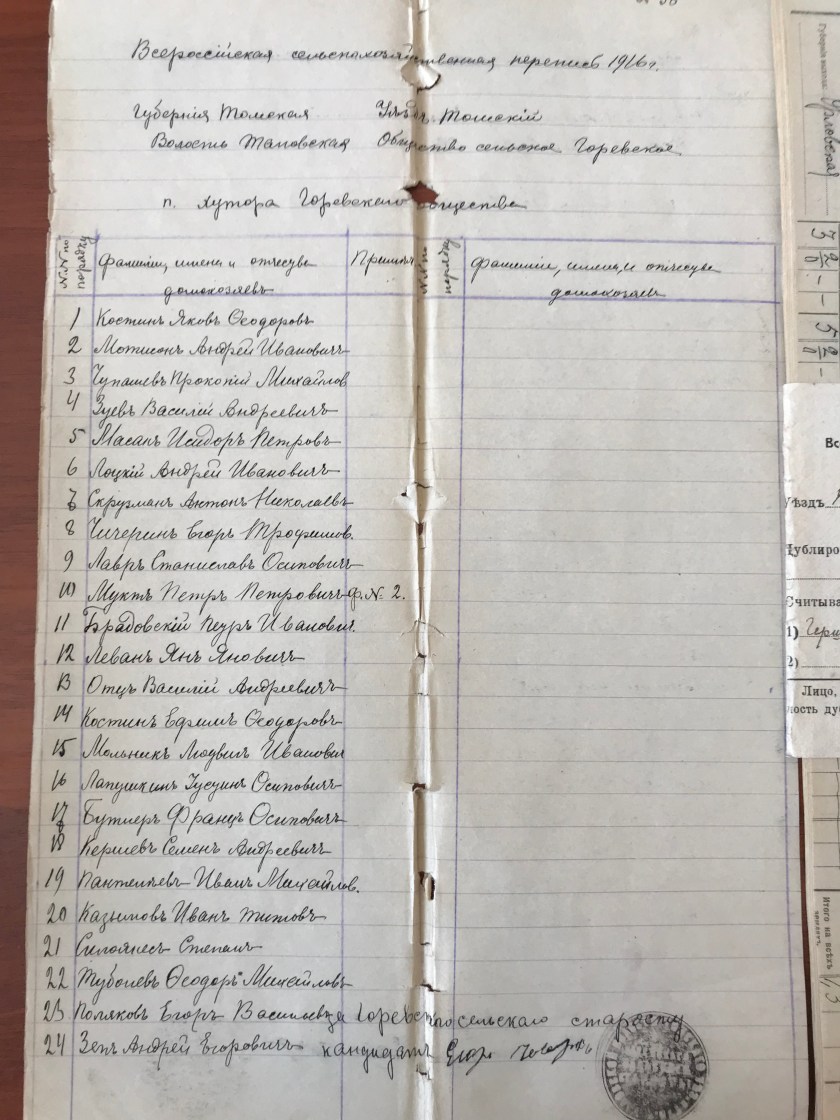 Всероссійская сельскохозяйственная перепись 1916 г.
Губернія Томская Уѣздъ Томскій
Волость Тановская Общество сельское Горевское
п. Хутора Горевскаго общества
№№ по порядку Фамиліи, имена и отчества домохозяевъ Примѣч. №№ по порядку Фамиліи, имена и отчества домохозяевъ
1 Костинъ Яковъ Ѳеодоровъ
2 Мотисонъ Андрей Ивановичъ
3 Чупашевъ Прокопій Михайлов
4 Зуевъ Василій Андреевичъ
5 Масанъ Исидоръ Петровъ
6 Лоцкій Андрей Ивановичъ
7 Скрузманъ Антонъ Николаевъ
8 Чичеринъ Егоръ Трофимов.
9 Лавръ Станиславъ Осиповичъ
10 Муктъ Петръ Петровичъ ф. № 2.
11 Брадовскій Петръ Иванович.
12 Леванъ Янъ Яновичъ
13 Отцъ Василій Андреевичъ
14 Костинъ Ефимъ Ѳеодоровъ
15 Мольникъ Людвигъ Иванович
16 Лапушкинъ Осиповичъ
17 Бутлеръ Францъ Осиповичъ
18 Кершевъ Семенъ Андреевичъ
19 Пантелѣевъ Иванъ Михайлов.
20 Казымовъ Иванъ Титовъ
21 Степанъ
22 Ѳеодоръ Михайловъ
23 Поляковъ Егоръ Васильевъ за Горевскаго сельскаго старосту
24 Зепъ Андрей Егоровичъ кандидатъ Егоръ
Орловская
Вс
Уѣздъ
Дублиро
Считыва
1)
2)
Лицо,
ность ду
Итого на всѣхъ